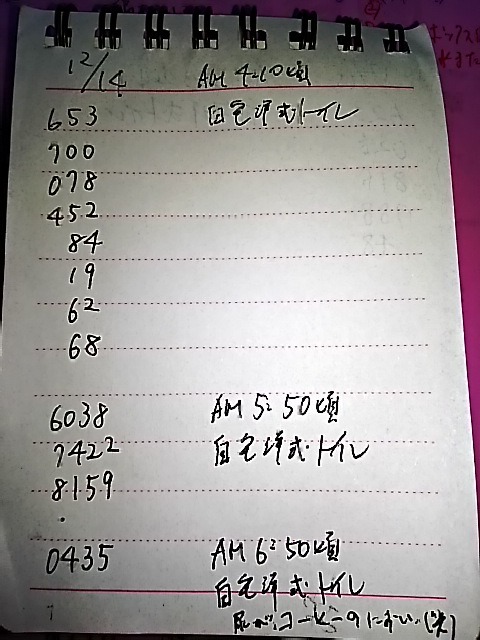 12/14 AM 4:10頃
653 自宅洋式トイレ
700
078
452
84
19
62
68
6038 AM 5:50頃
7422 自宅洋式トイレ
8159
.
0435 AM 6:50頃
自宅洋式トイレ
尿がコーヒーのにおい(笑)